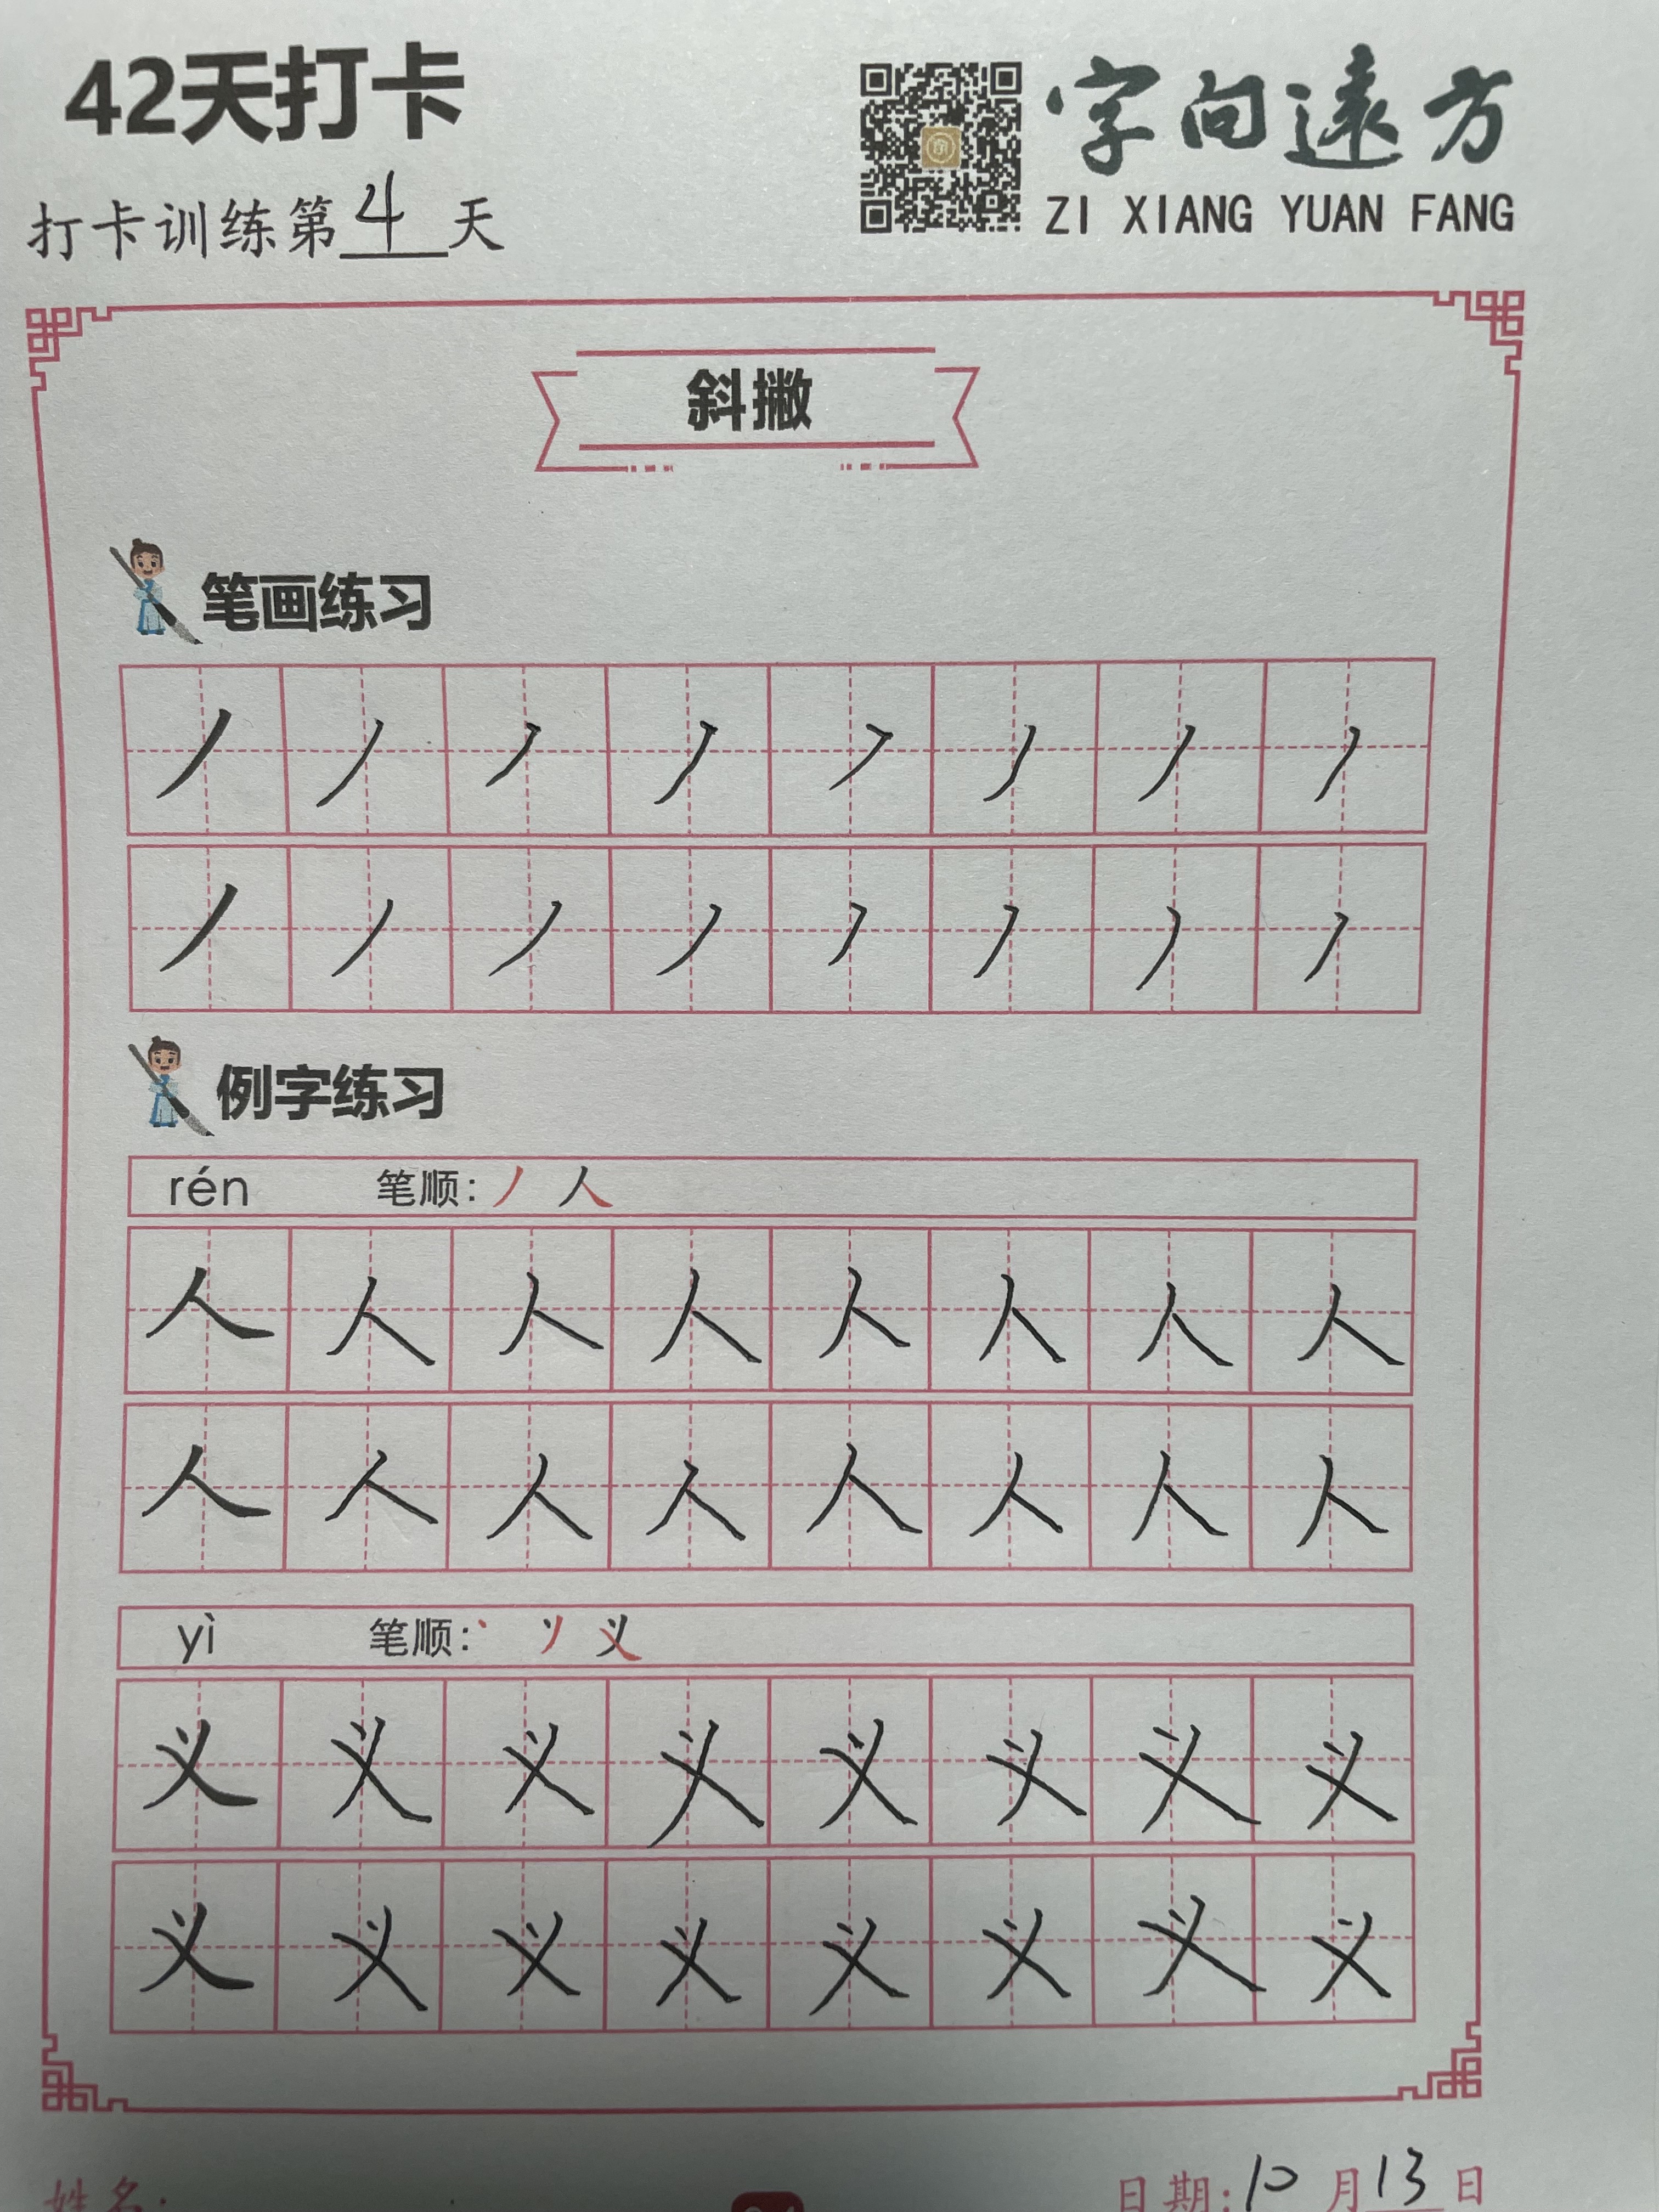 42天打卡
字向遠方
ZI XIANG YUAN FANG
打卡训练第4天
斜撇
笔画练习
丿丿丿丿丿丿丿丿
丿丿丿丿丿丿丿丿
例字练习
rén 笔顺: 丿 人
人人人人人人人人
人人人人人人人人
yì 笔顺: 丶 丷 义
义义义义义义义义
义义义义义义义义
姓名:
日期: 10月13日